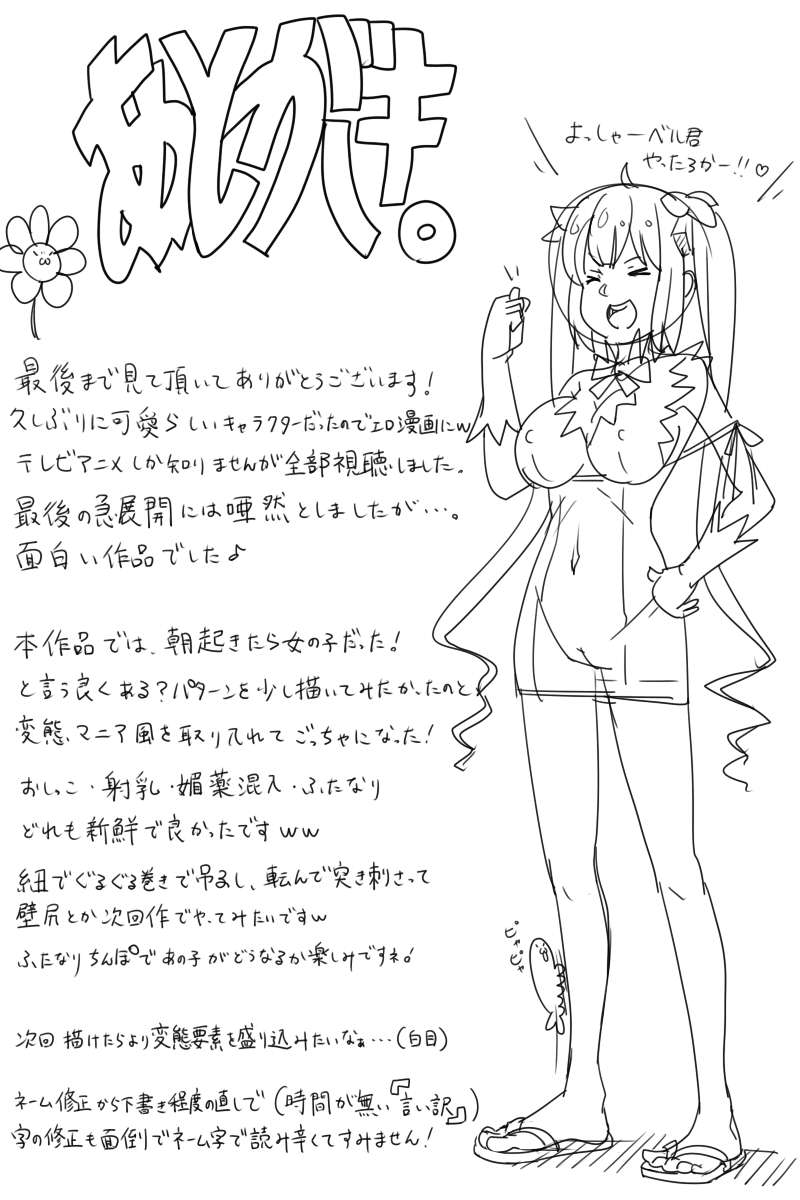 あとがき。
よっしゃーベル君
やったろかー!!♡
最後まで見て頂いてありがとうございます!
久しぶりに可愛らしいキャラクターだったのでエロ漫画にw
テレビアニメしか知りませんが全部視聴しました。
最後の急展開には唖然としましたが…。
面白い作品でした♪
本作品では、朝起きたら女の子だった!
と言う良くある?パターンを少し描いてみたかったのと、
変態、マニア風を取り入れてごっちゃになった!
おしっこ・射乳・媚薬混入・ふたなり
どれも新鮮で良かったですww
紐でぐるぐる巻きで吊るし、転んで突き刺さって
壁尻とか次回作でやってみたいですw
ふたなりちんぽであの子がどうなるか楽しみですネ!
ピャピャ
次回描けたらより変態要素を盛り込みたいなぁ…(白目)
ネーム修正から下書き程度の直しで(時間が無い『言い訳』)
字の修正も面倒でネーム字で読み辛くてすみません!